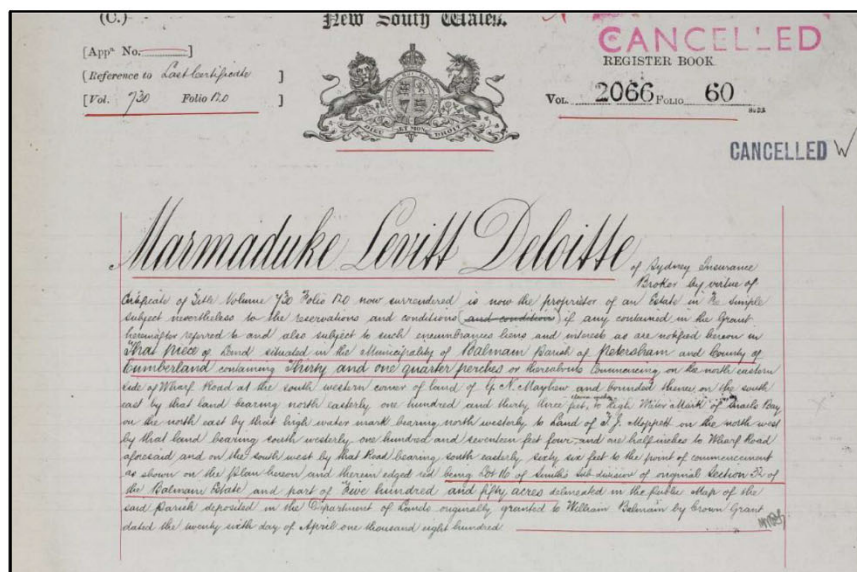 (C.)
New South Wales.
CANCELLED
[Appn No.]
[Reference to Last Certificate]
[Vol. 730 Folio 120]
REGISTER BOOK.
VOL. 2066 FOLIO 60
CANCELLED W
DIEU ET MON DROIT
Marmaduke Levitt Deloitte
of Sydney Insurance
Broker by virtue of
Certificate of Title Volume 730 Folio 120 now surrendered is now the proprietor of an Estate in Fee Simple
subject nevertheless to the reservations and conditions (and condition) if any contained in the Grant
hereinafter referred to and also subject to such encumbrances liens and interests as are notified hereon in
That piece of Land situated in the Municipality of Balmain Parish of Petersham and County of
Cumberland containing Thirty and one quarter perches or thereabouts Commencing on the north eastern
side of Wharf Road at the south western corner of land of G. N. Mayhew and bounded thence on the south
east by that land bearing north easterly one hundred and thirty three feet to High Water Mark of Snails Bay
on the north east by that high water mark bearing north westerly to Land of T. J. Moppett on the north west
by that land bearing south westerly one hundred and seventeen feet four and one half inches to Wharf Road
aforesaid and on the south west by that Road bearing south easterly sixty six feet to the point of commencement
as shown on the plan hereon and therein edged red being Lot of Smiths sub division of original Section of
the Balmain Estate and part of Five hundred and fifty acres delineated in the Public Map of the
said Parish deposited in the Department of Lands originally granted to William Balmain by Crown Grant
dated the twenty sixth day of April one thousand eight hundred